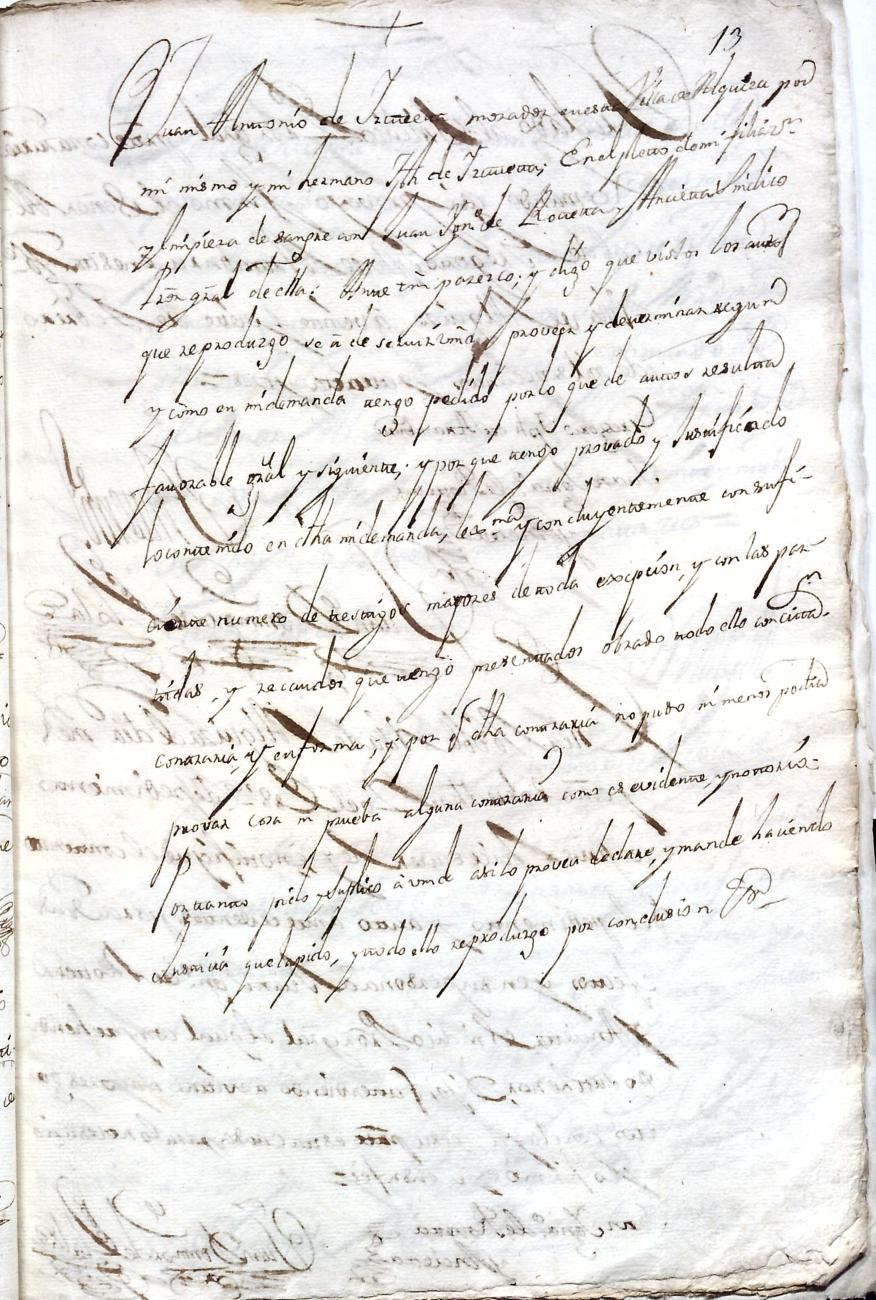 13
Juan Antonio de Yrureta morador en esta Villa de Alquiza por
mi mismo y mi hermano Jph de Yrureta; En el pleito de mi filiazon
y limpieza de sangre con Juan Ygnº de Roteta y Ancieta Sindico
Prõr gral de ella: Ante Vm parezco; y digo que vistos los autos
que reprodurgo se a de servir Vmd proveer y determinar segun
y como en mi demanda tengo pedido por lo que de autos resulta
favorable gral y siguiente; y por que tengo provado y Justificado
lo contenido en dha mi demanda, y concluyentemente con sufi-
ciente numero de testigos mayores de toda excepcion, y con las par-
tidas, y recaudos que tengo presentados obrado todo ello con cittaon
contraria, y en forma; y por q dha contraria no pudo ni menos podra
provar cosa ni prueba alguna contraria como es evidente, y nottorio-
Por tanto pido y suplico à vmd asi lo provea declare, y mande haciendo
Justicia que la pido, y todo ello reprodurgo por conclusion